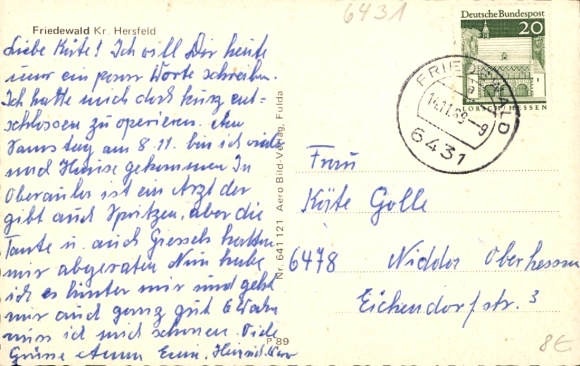 6431
Friedewald Kr. Hersfeld
Liebe Käte! Ich will Dir heute
nur ein paar Worte schreiben.
Ich hatte mich doch kurz ent-
schlossen zu operieren. Am
Samstag am 8.11. bin ich wieder
nach Hause gekommen In
Oberaula ist ein Arzt der
gibt auch Spritzen, aber die
Tante u. auch hatten
mir abgeraten Nun habe
ich es hinter mir und geht
mir auch ganz gut 6 Wochen
muss ich mich schonen. Viele
Grüsse
Nr. 641121 Aero Bild-Verlag, Fulda
P 89
Deutsche Bundespost
20
LORSCH/HESSEN
FRIEDEWALD
14.11.69-9
6431
Frau
Käte Golle
6478 Nidda Oberhessen
Eichendorfstr. 3
8€